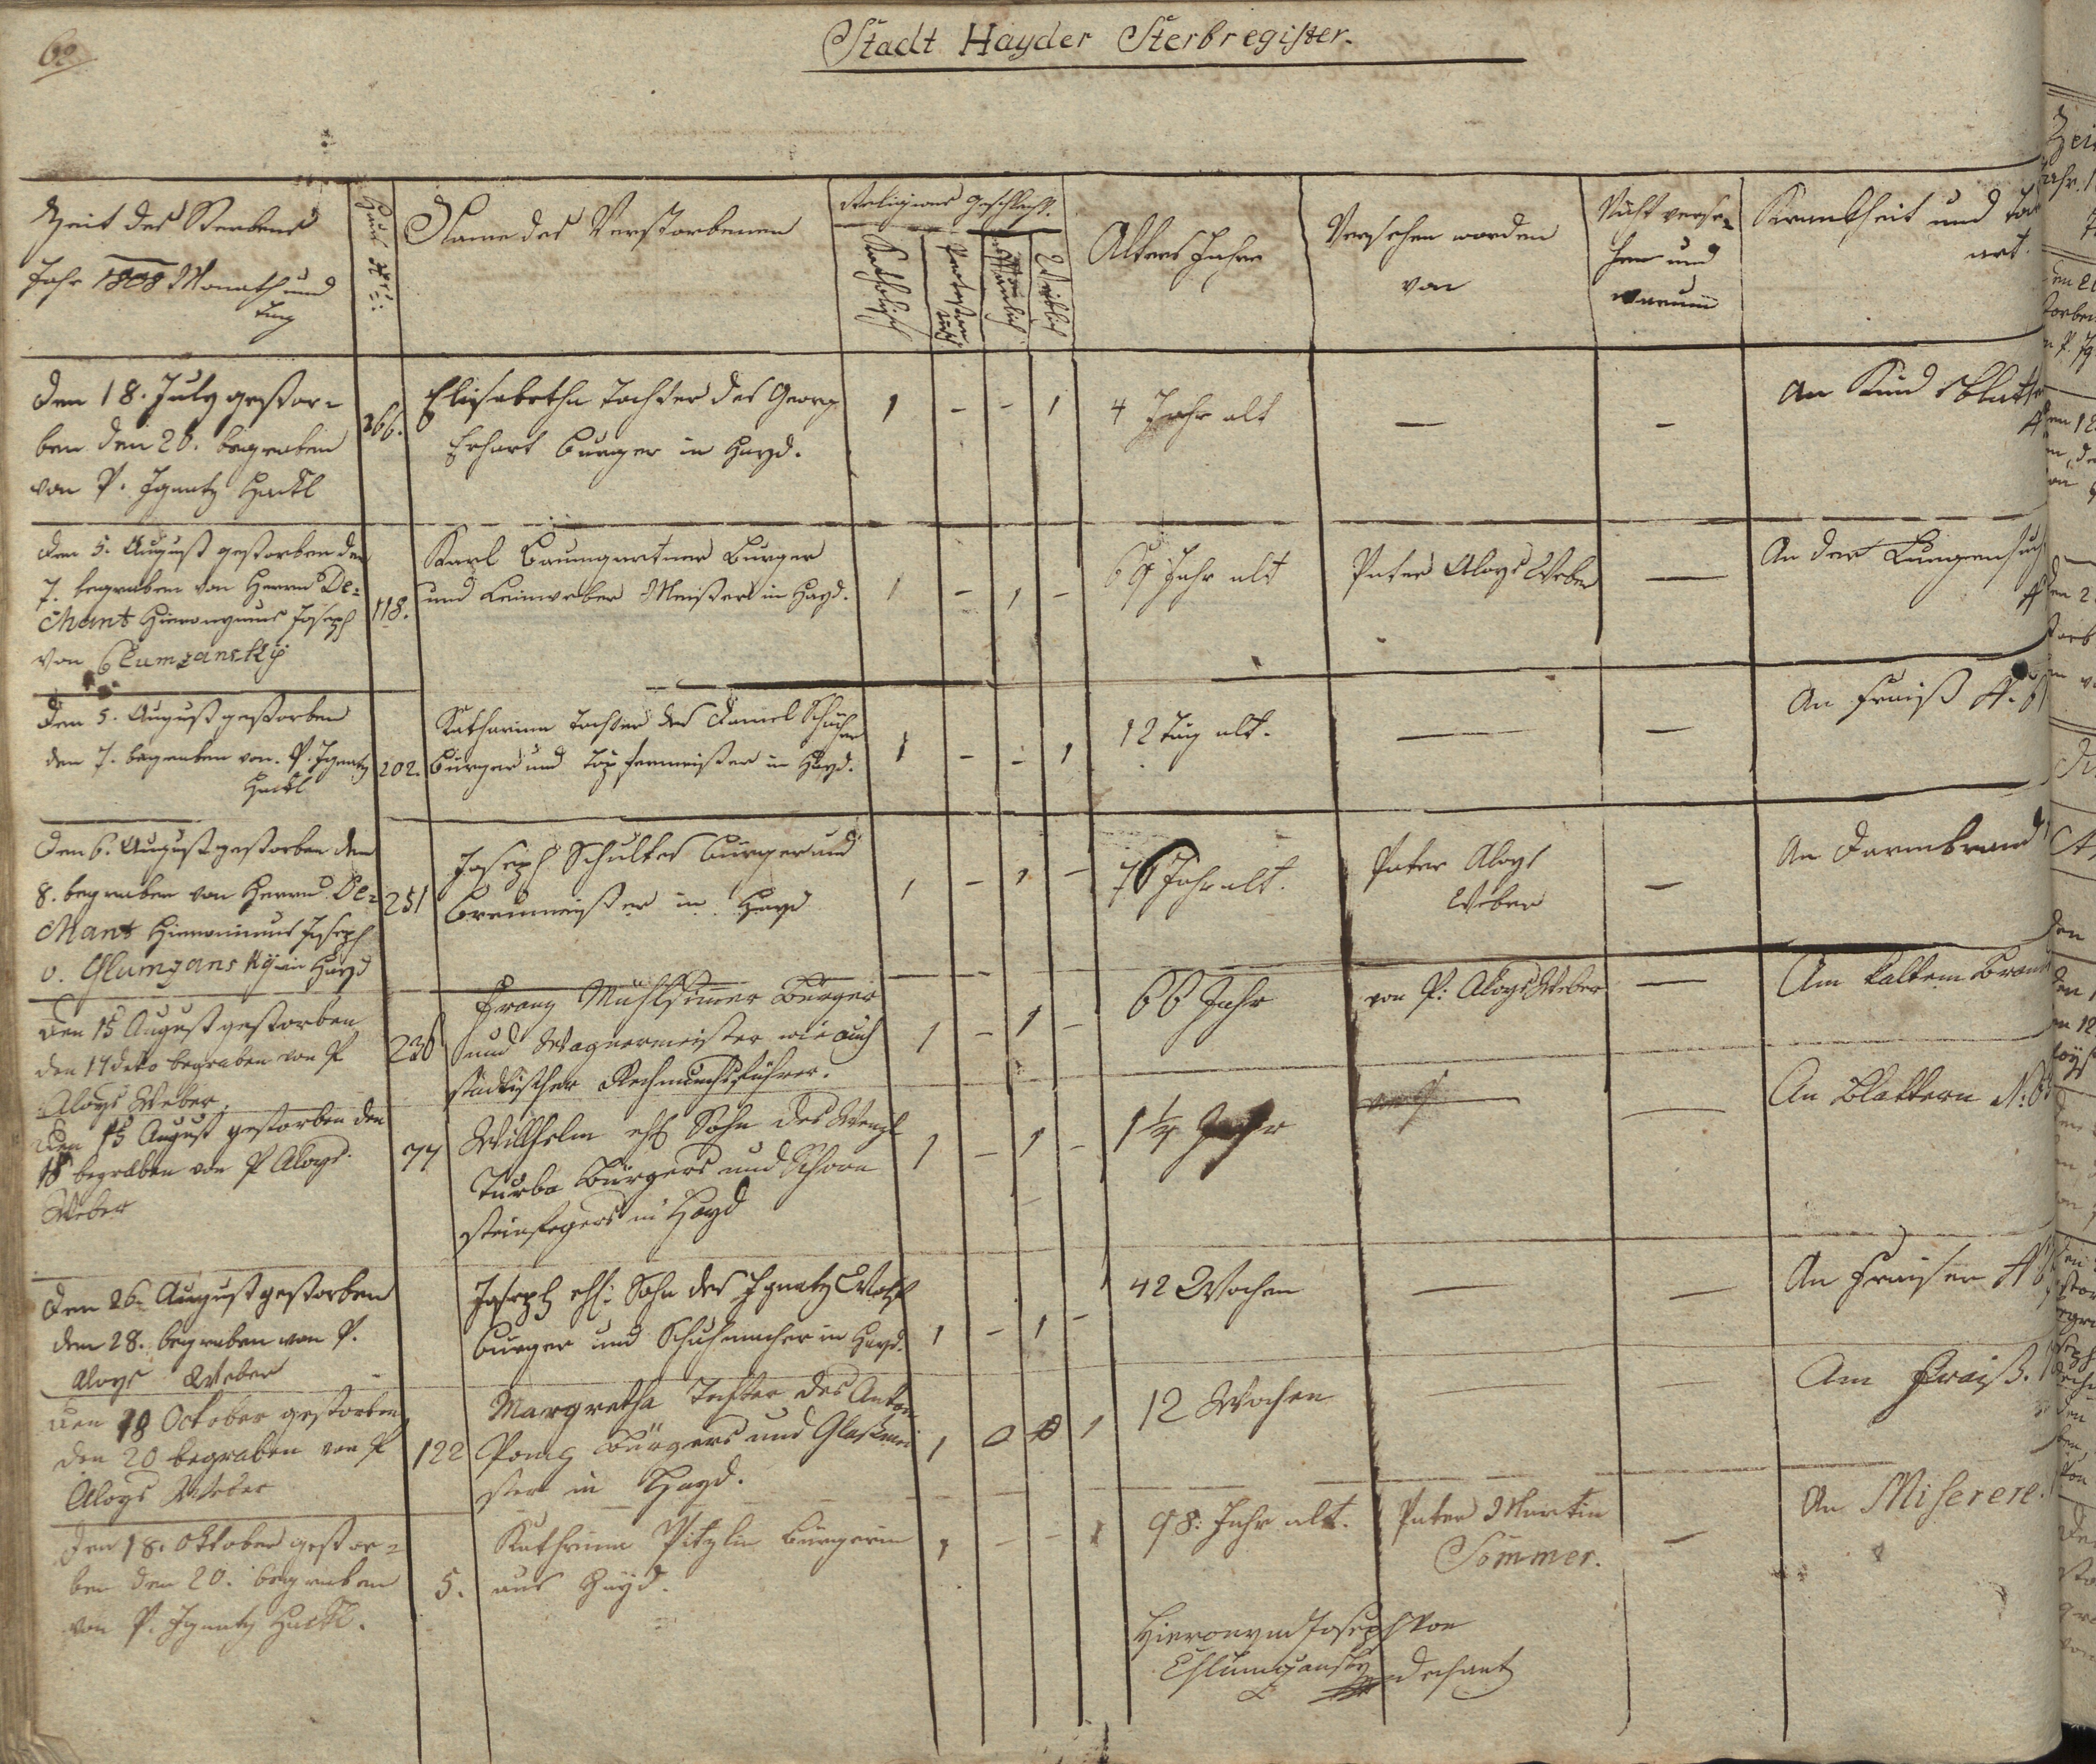 60
Stadt Hayder Sterbregister.
Zeit des Sterbens
Jahr 1808 Monath und
Tag
Haus Nro:
Name des Verstorbenen
Religions
Geschlecht.
Katholisch
Protestantisch
Mänlich
Weiblich
Alters Jahre
Versehen worden
von
Nicht verse=
hen und
warum
Krankheit und
art.
Den 18. July gestor=
ben den 20. begraben
von P. Ignatz Hackl
266.
Elisabetha Tochter des Georg
Erhart burger in Hayd.
1 - - 1
4 Jahr alt
—
-
An
Den 5. August gestorben den
7. begraben von Herrn De=
chant Hieronymus Joseph
von Clumzansky
118.
Karl Baumgartner burger
und Leinweber Meister in Hayd.
1 - 1 -
69 Jahr alt
Pater Aloys Weber
—
An der Lungensuch
Den 5. August gestorben
den 7. begraben von P. Ignatz
Hackl
202.
Katharina Tochter des Daniel
burger und Töpfermeister in Hayd.
1 - - 1
12 Tag alt.
—
—
An Fraiß
Den 6. August gestorben den
8. begraben von Herrn De=
chant Hieronimus Joseph
v. Glumzansky in Hayd
251
Joseph Schultes burger und
Breumeister in Hayd
1 - 1 -
76 Jahr alt.
Pater Aloys
Weber
—
An Darmbrand
Den 15 August gestorben
den 17 deto begraben von P
Aloys Weber.
236
Franz Bürger
und Wagnermeister wie auch
städtischer Rechnungsführer.
1 - 1 -
66 Jahr
von P: Aloys Weber
—
Am kaltem Brand
Den 15 August gestorben den
18 begraben von P Aloys
Weber
77
Willhelm ehl Sohn des Wenzl
Turba Bürgers und Schorn
steinfegers in Hayd
1 - 1 -
1 1/4 Jahr
—
—
An Blattern
Den 26. August gestorben
den 28. begraben von P.
Aloys Weber
Joseph ehl: Sohn des Ignatz Wolf
burger und Schuhmacher in Hayd.
1 - 1 -
42 Wochen
—
—
An Fraisen
Den 18 October gestorben
den 20 begraben von P
Aloys Weber
122
Margretha Tochter des Anton
Bürgers und Glasmei
ster in Hayd.
1 0 0 1
12 Wochen
—
—
Am Fraiß.
Den 18. Oktober gestor=
ben den 20. begraben
von P. Ignatz Hackl.
5.
Kathrina Pitzlin bürgerin
aus Hayd.
1 - - 1
98: Jahr alt.
Pater Martin
Sommer.
—
An Miserere.
Hieronym Joseph von
Chlumzansky Dechant